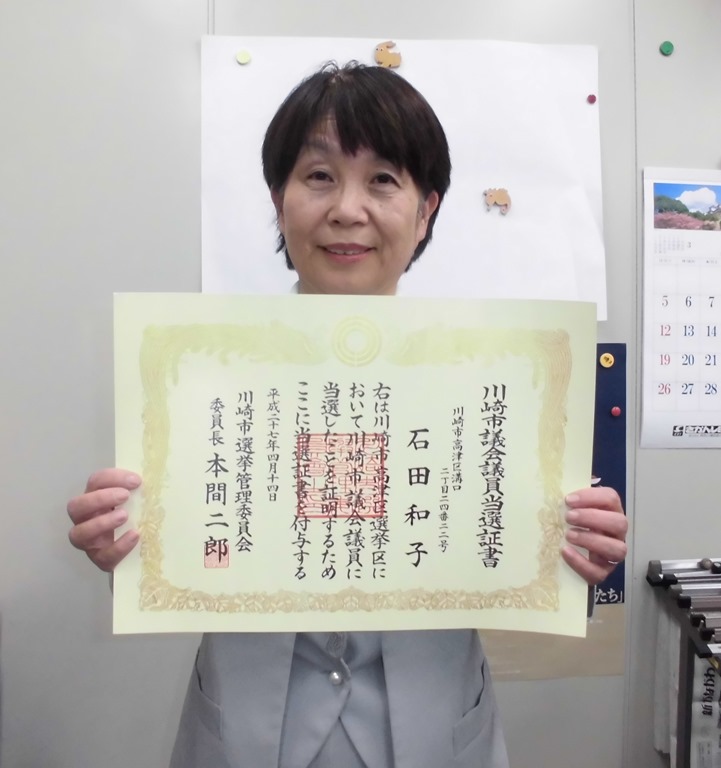 川崎市議会議員当選証書
川崎市高津区溝口
二丁目二四番二二号
石田和子
右は川崎市高津区選挙区に
おいて川崎市議会議員に
当選したことを証明するため
ここに当選証書を付与する
平成二十七年四月十四日
川崎市選挙管理委員会
委員長 本間二郎
5 6 7
12 13 14
19 20 21
26 27 28
たち」